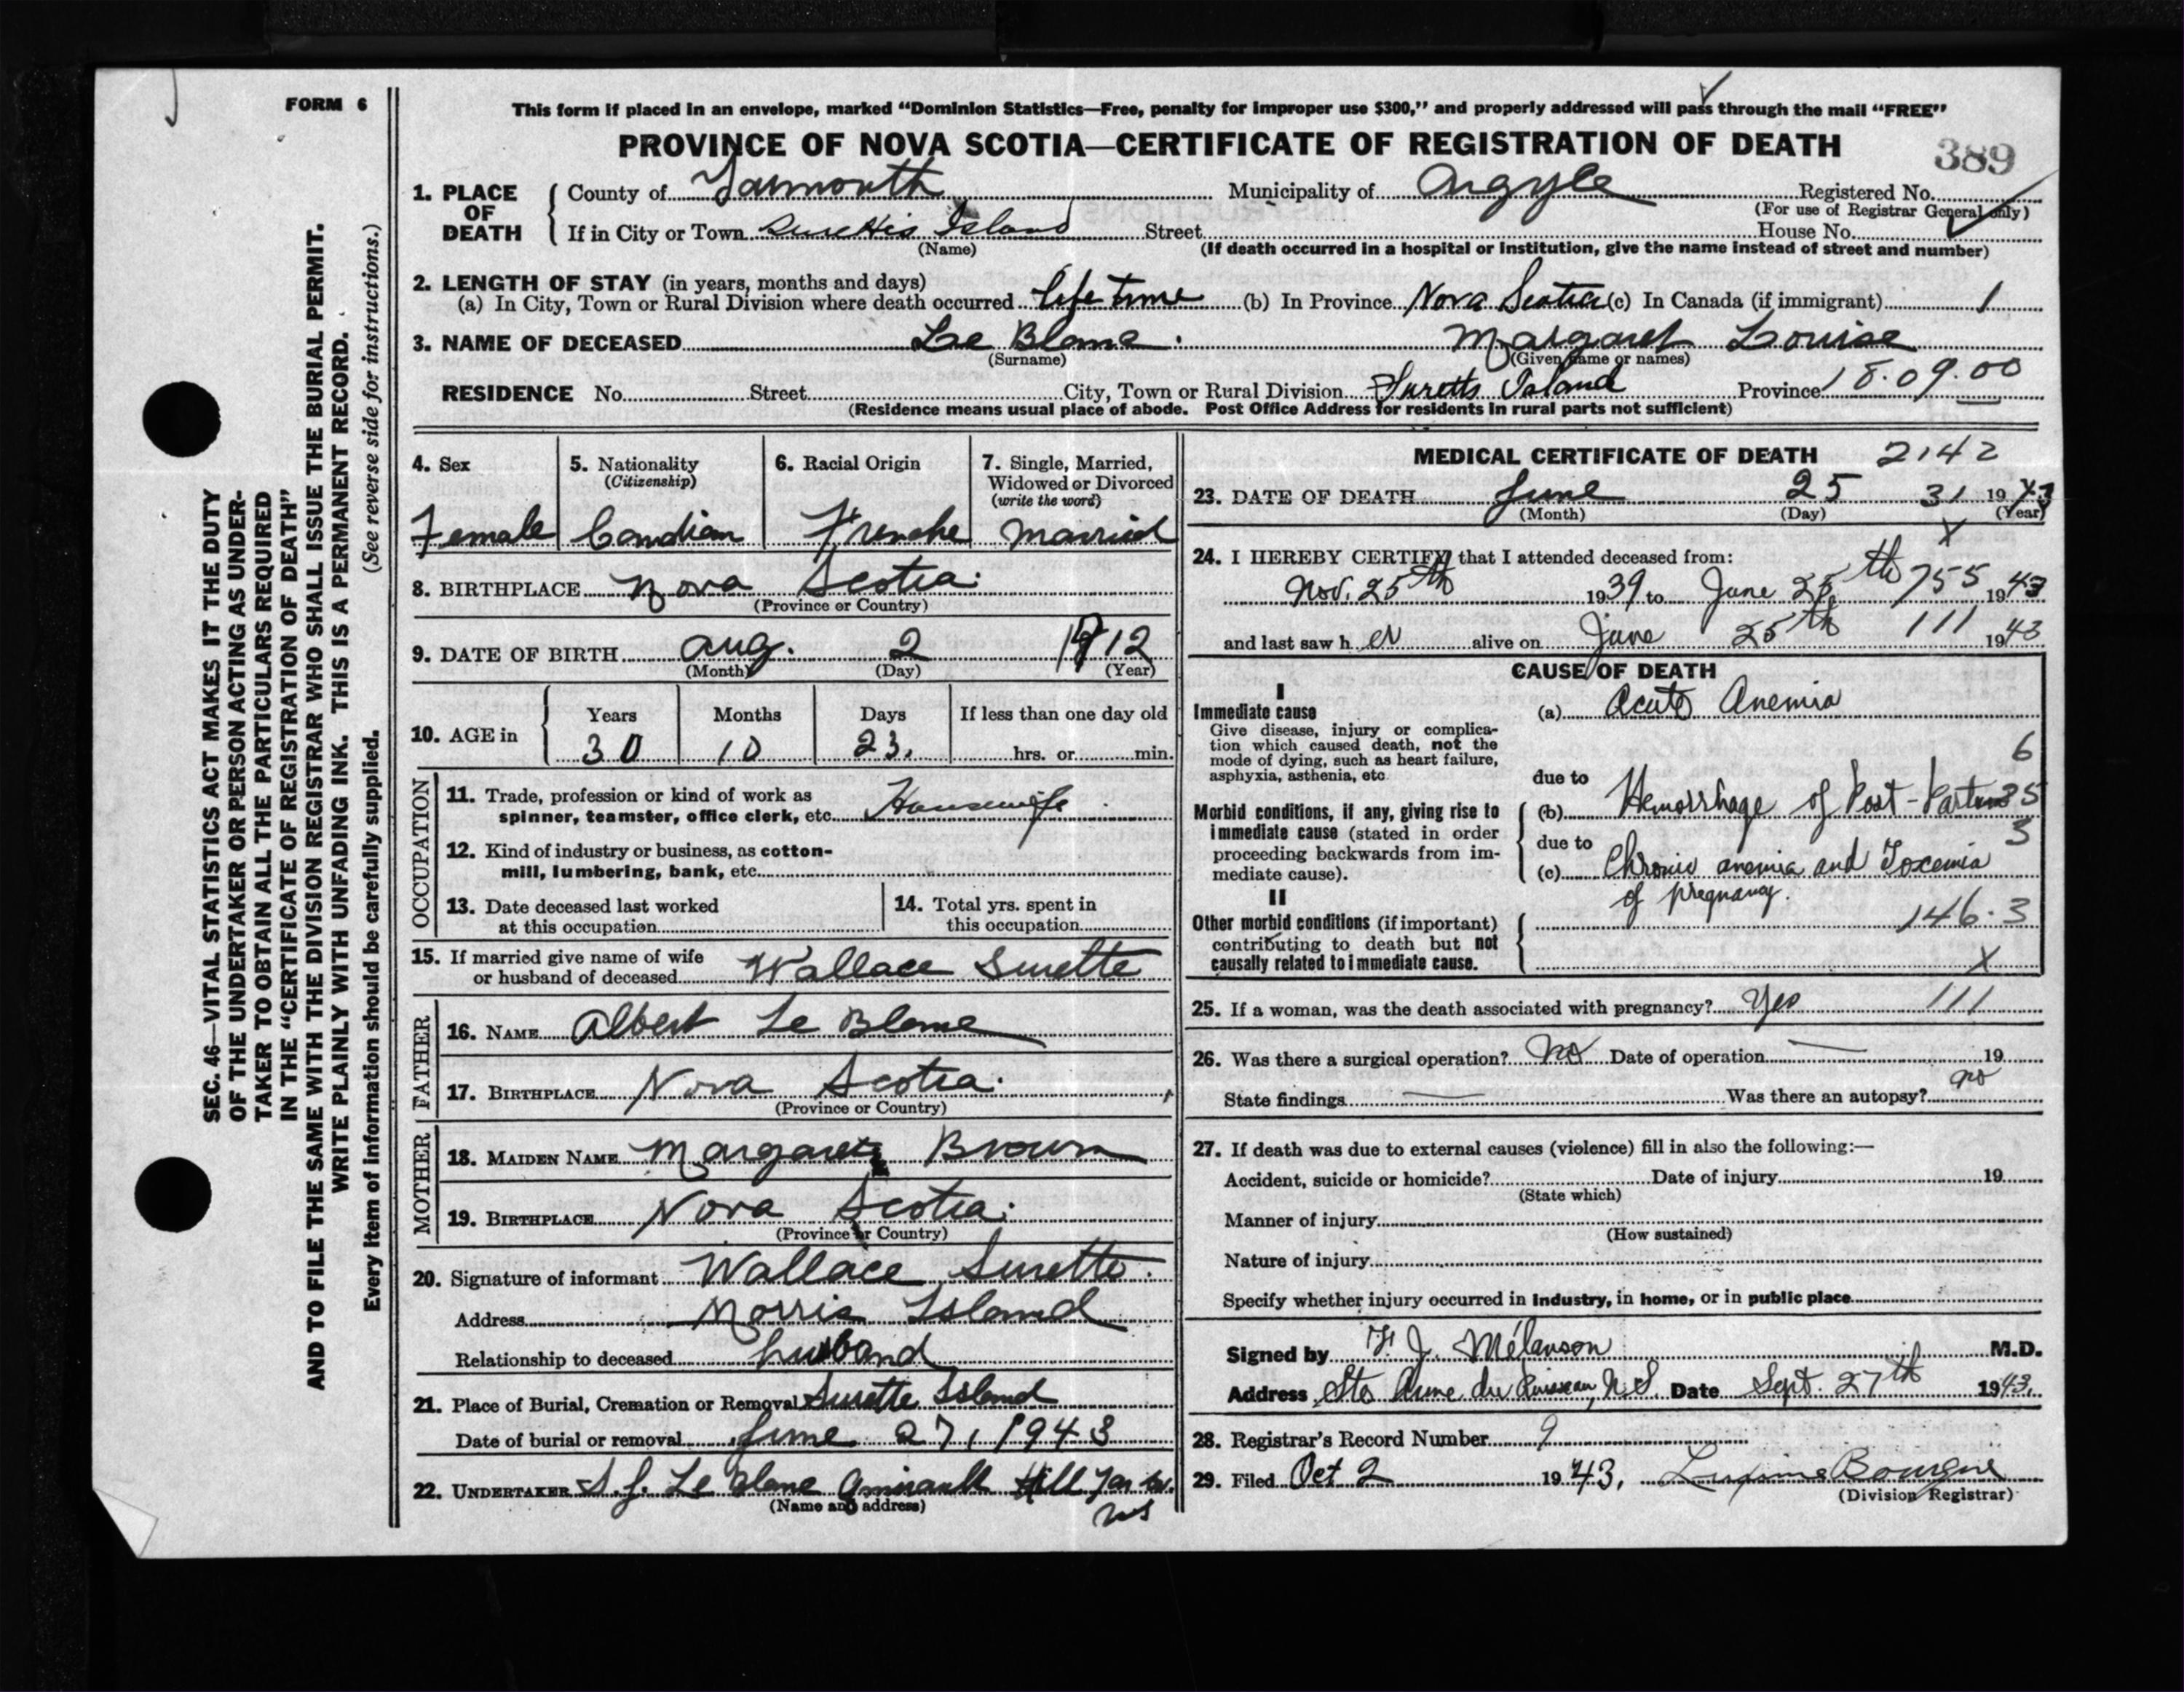 FORM 6
This form if placed in an envelope, marked "Dominion Statistics—Free, penalty for improper use $300," and properly addressed will pass through the mail "FREE"
PROVINCE OF NOVA SCOTIA—CERTIFICATE OF REGISTRATION OF DEATH
389
SEC. 46—VITAL STATISTICS ACT MAKES IT THE DUTY
OF THE UNDERTAKER OR PERSON ACTING AS UNDER-
TAKER TO OBTAIN ALL THE PARTICULARS REQUIRED
IN THE "CERTIFICATE OF REGISTRATION OF DEATH"
AND TO FILE THE SAME WITH THE DIVISION REGISTRAR WHO SHALL ISSUE THE BURIAL PERMIT.
WRITE PLAINLY WITH UNFADING INK. THIS IS A PERMANENT RECORD.
Every item of information should be carefully supplied. (See reverse side for instructions.)
1. PLACE OF DEATH County of Yarmouth Municipality of Argyle Registered No.
(For use of Registrar General only)
If in City or Town Surettes Island Street House No.
(Name) (If death occurred in a hospital or institution, give the name instead of street and number)
2. LENGTH OF STAY (in years, months and days)
(a) In City, Town or Rural Division where death occurred life time (b) In Province Nova Scotia (c) In Canada (if immigrant) 1
3. NAME OF DECEASED Le Blanc. Margaret Louise
(Surname) (Given name or names)
RESIDENCE No. Street City, Town or Rural Division Suretts Island Province 18.09.00
(Residence means usual place of abode. Post Office Address for residents in rural parts not sufficient)
4. Sex 5. Nationality 6. Racial Origin 7. Single, Married,
(Citizenship) Widowed or Divorced
(write the word)
Female Candian Frenche Married
8. BIRTHPLACE Nova Scotia.
(Province or Country)
9. DATE OF BIRTH Aug. 2 1912
(Month) (Day) (Year)
10. AGE in Years Months Days If less than one day old
30 10 23. hrs. or min.
OCCUPATION
11. Trade, profession or kind of work as
spinner, teamster, office clerk, etc. Housewife
12. Kind of industry or business, as cotton-
mill, lumbering, bank, etc.
13. Date deceased last worked 14. Total yrs. spent in
at this occupation this occupation
15. If married give name of wife
or husband of deceased Wallace Surette
FATHER
16. NAME Albert Le Blanc
17. BIRTHPLACE Nova Scotia.
(Province or Country)
MOTHER
18. MAIDEN NAME Margaret Brown
19. BIRTHPLACE Nova Scotia.
(Province or Country)
20. Signature of informant Wallace Surette.
Address Morris Island
Relationship to deceased husband
21. Place of Burial, Cremation or Removal Surette Island
Date of burial or removal June 27, 1943
22. UNDERTAKER S. J. Le Blanc Amirault Hill Yar
(Name and address) NS
MEDICAL CERTIFICATE OF DEATH 2142
23. DATE OF DEATH June 25 31 1943
(Month) (Day) (Year)
X
24. I HEREBY CERTIFY that I attended deceased from:
Nov. 25th 1939 to June 25th 755 1943
and last saw her alive on June 25th 111 1943
CAUSE OF DEATH
I
Immediate cause (a) Acute Anemia
Give disease, injury or complica-
tion which caused death, not the
mode of dying, such as heart failure, 6
asphyxia, asthenia, etc. due to
Morbid conditions, if any, giving rise to (b) Hemorrhage of Post-Partum 35
immediate cause (stated in order
proceeding backwards from im- due to 3
mediate cause). (c) Chronic anemia and Toxemia
of pregnancy.
II
Other morbid conditions (if important) 146.3
contributing to death but not
causally related to immediate cause. X
25. If a woman, was the death associated with pregnancy? Yes 111
26. Was there a surgical operation? No Date of operation — 19
State findings — Was there an autopsy? no
27. If death was due to external causes (violence) fill in also the following:—
Accident, suicide or homicide? Date of injury 19
(State which)
Manner of injury
(How sustained)
Nature of injury
Specify whether injury occurred in industry, in home, or in public place
Signed by J. Mélanson M.D.
Address Ste Anne du Ruisseau, N.S. Date Sept. 27th 1943.
28. Registrar's Record Number 9
29. Filed Oct 2 1943, Bourque
(Division Registrar)